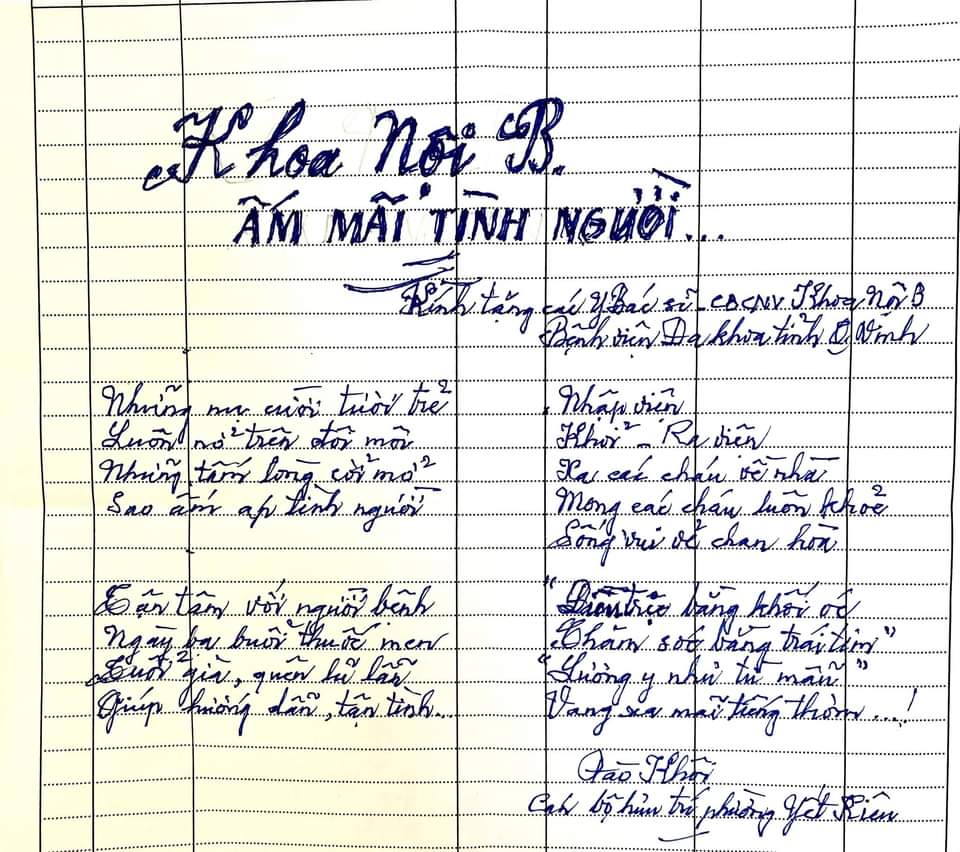 Khoa Nội B.
ẤM MÃI TÌNH NGƯỜI...
Kính tặng các Y Bác sĩ - CBCNV Khoa Nội B
Bệnh viện Đa khoa tỉnh Q Ninh
Những nụ cười tươi trẻ
Luôn nở trên đôi môi
Những tấm lòng cởi mở
Sao ấm áp tình người
Tận tâm với người bệnh
Ngày ba buổi thuốc men
Tuổi già, quên lú lẫn
Giúp hướng dẫn, tận tình...
Nhập viện
Khỏi - Ra viện
Xa các cháu về nhà
Mong các cháu luôn khoẻ
Sống vui vẻ chan hoà
"Điều trị bằng khối óc
Chăm sóc bằng trái tim"
"Lương y như từ mẫu"
Vang xa mãi tiếng thơm....!
Đào Khôi
Cán bộ hưu trí phường Yết Kiêu